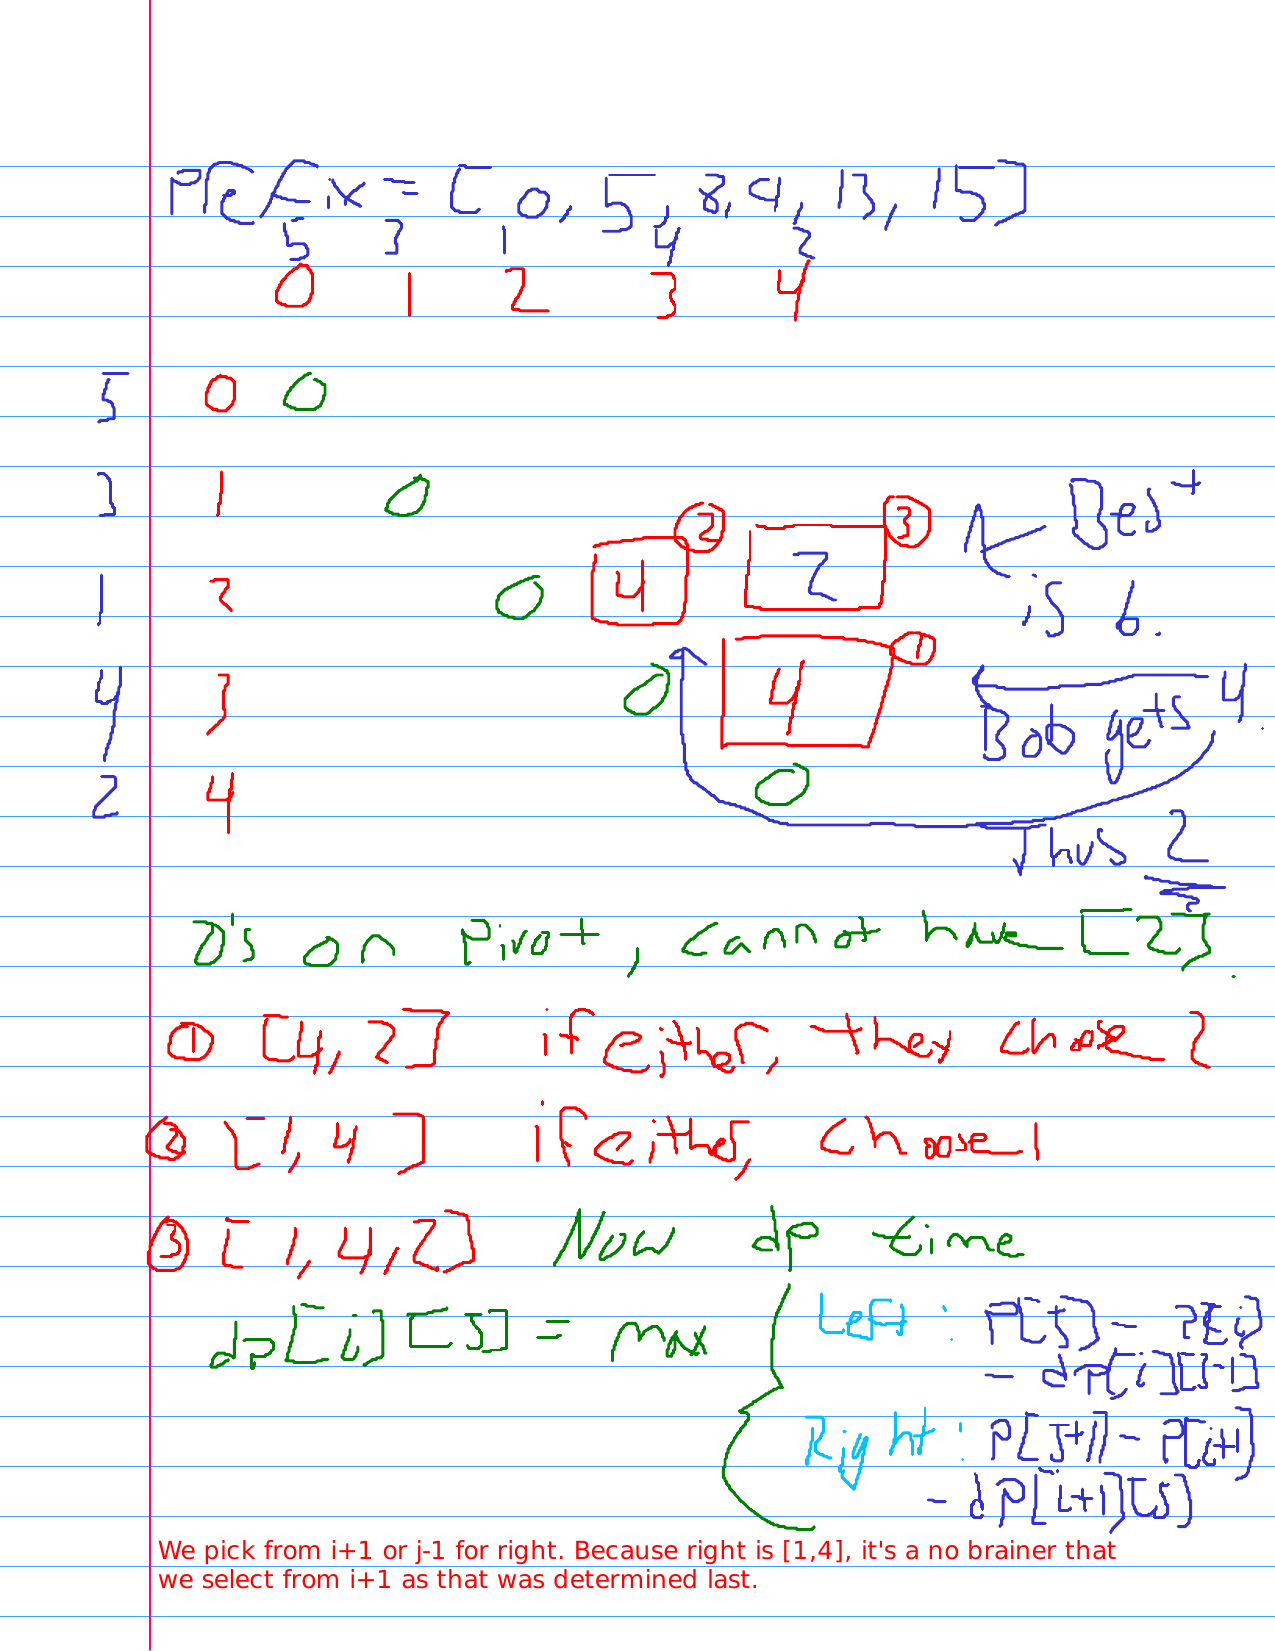 Prefix = [0, 5, 8, 9, 13, 15]
5 3 1 4 2
0 1 2 3 4
5 0 0
3 1 0
② ③ Best
1 2 0 4 2 is 6.
①
4 3 0 4 4.
Bob gets
2 4 0
Thus 2
0's on pivot, cannot have [2].
① [4, 2] if either, they choose 2
② [1, 4] if either, choose 1
③ [1, 4, 2] Now dp time
dp[i][j] = max
Left: P[j] - P[i]
- dp[i][j-1]
Right: P[j+1] - P[i+1]
- dp[i+1][j]
We pick from i+1 or j-1 for right. Because right is [1,4], it's a no brainer that
we select from i+1 as that was determined last.